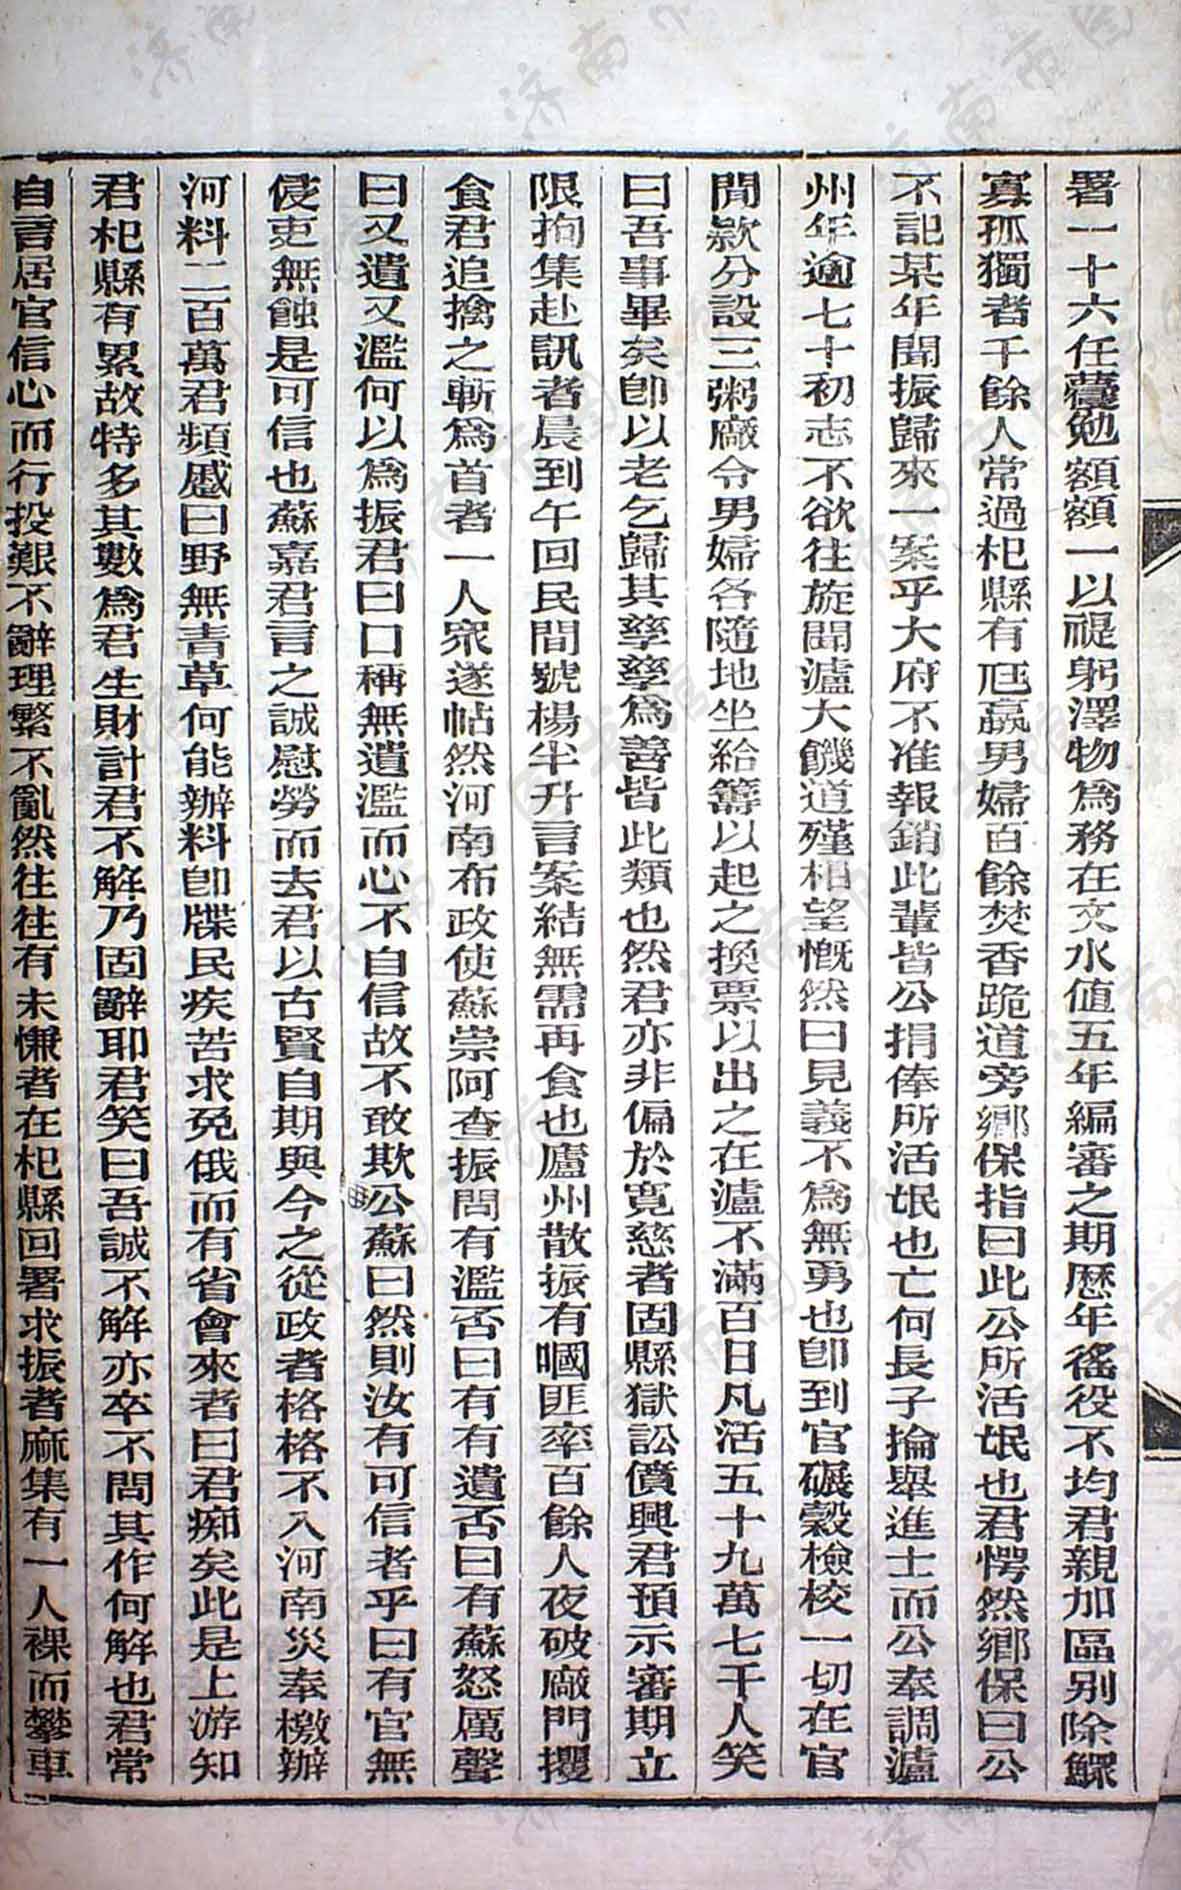 署一十六任虆勉額額一以禔躬澤物爲務在文水值五年編審之期歷年徭役不均君親加區别除鰥
寡孤獨者千餘人常過杞縣有尩羸男婦百餘焚香跪道旁鄉保指曰此公所活氓也君愕然鄉保曰公
不記某年聞振歸來一案乎大府不准報銷此輩皆公捐俸所活氓也亡何長子掄舉進士而公奉調瀘
州年逾七十初志不欲往旋聞瀘大饑道殣相望慨然曰見義不爲無勇也卽到官碾穀檢校一切在官
閒款分設三粥廠令男婦各隨地坐給籌以起之換票以出之在瀘不滿百日凡活五十九萬七千人笑
曰吾事畢矣卽以老乞歸其孳孳爲善皆此類也然君亦非偏於寬慈者固縣獄訟僨興君預示審期立
限拘集赴訊者晨到午回民間號楊半升言案結無需再食也廬州散振有嘓匪率百餘人夜破廠門攫
食君追擒之斬爲首者一人眾遂帖然河南布政使蘇崇阿查振問有濫否曰有有遺否曰有蘇怒厲聲
曰又遺又濫何以爲振君曰口稱無遺濫而心不自信故不敢欺公蘇曰然則汝有可信者乎曰有官無
侵吏無蝕是可信也蘇嘉君言之誠慰勞而去君以古賢自期與今之從政者格格不入河南災奉檄辦
河料二百萬君頻蹙曰野無青草何能辦料卽牒民疾苦求免俄而有省會來者曰君痴矣此是上游知
君杞縣有累故特多其數爲君生財計君不解乃固辭耶君笑曰吾誠不解亦卒不問其作何解也君常
自言居官信心而行投艱不辭理繁不亂然往往有未慊者在杞縣回署求振者麻集有一人裸而攀車